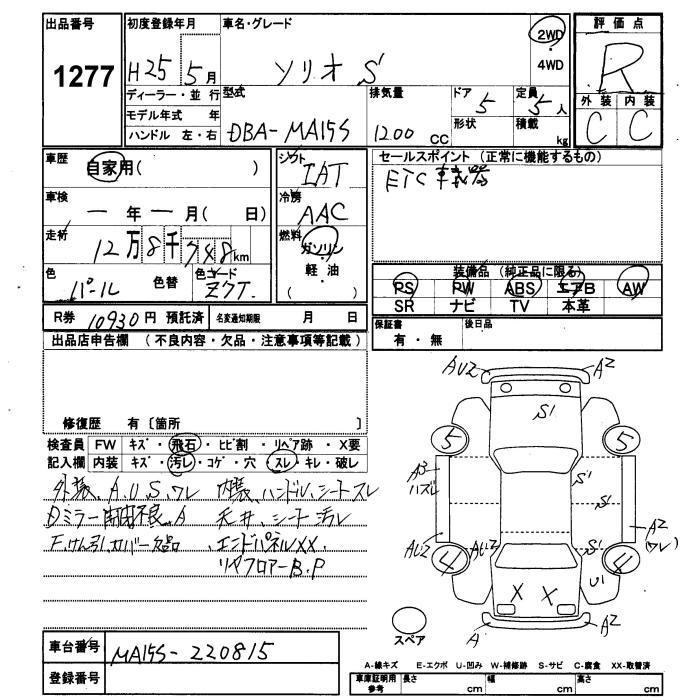 出品番号
1277
初度登録年月
H25 5月
車名・グレード
ソリオ S
2WD
・
4WD
評価点
R
外装 内装
C C
ディーラー・並行
モデル年式 年
ハンドル 左・右
型式
DBA-MA15S
排気量
1200 cc
ドア
5
形状
定員
5人
積載
kg
車歴
自家用( )
車検
ー年ー月( 日)
走行
12万8千748km
色
パール
色替
色コード
ZCT.
シフト
IAT
冷房
AAC
燃料
ガソリン
・
軽油
( )
セールスポイント (正常に機能するもの)
ETC車載器
装備品 (純正品に限る)
PS PW ABS エアB AW
SR ナビ TV 本革
R券 10930円 預託済 名変通知期限 月 日
保証書
有・無
後日品
出品店申告欄 (不良内容・欠品・注意事項等記載)
修復歴 有〔箇所 〕
検査員 FW キズ・飛石・ヒビ割・リペア跡・X要
記入欄 内装 キズ・汚レ・コゲ・穴・スレ・キレ・破レ
外装、A、U、S、ワレ 内装、ハンドル、シートスレ
Dミラー開閉不良、A 天井、シート汚レ
F、けん引カバー欠品、エンドパネルXX.
リヤフロアーB.P
AU2 A2
S1
5 5
A3
ハズレ
S1
S1
AU2
4
AU2
S1
A2
(ワレ)
4
U1
X X
A A2
スペア
車台番号
MA15S-220815
登録番号
A-線キズ E-エクボ U-凹み W-補修跡 S-サビ C-腐食 XX-取替済
車庫証明用
参考
長さ cm
幅 cm
高さ cm